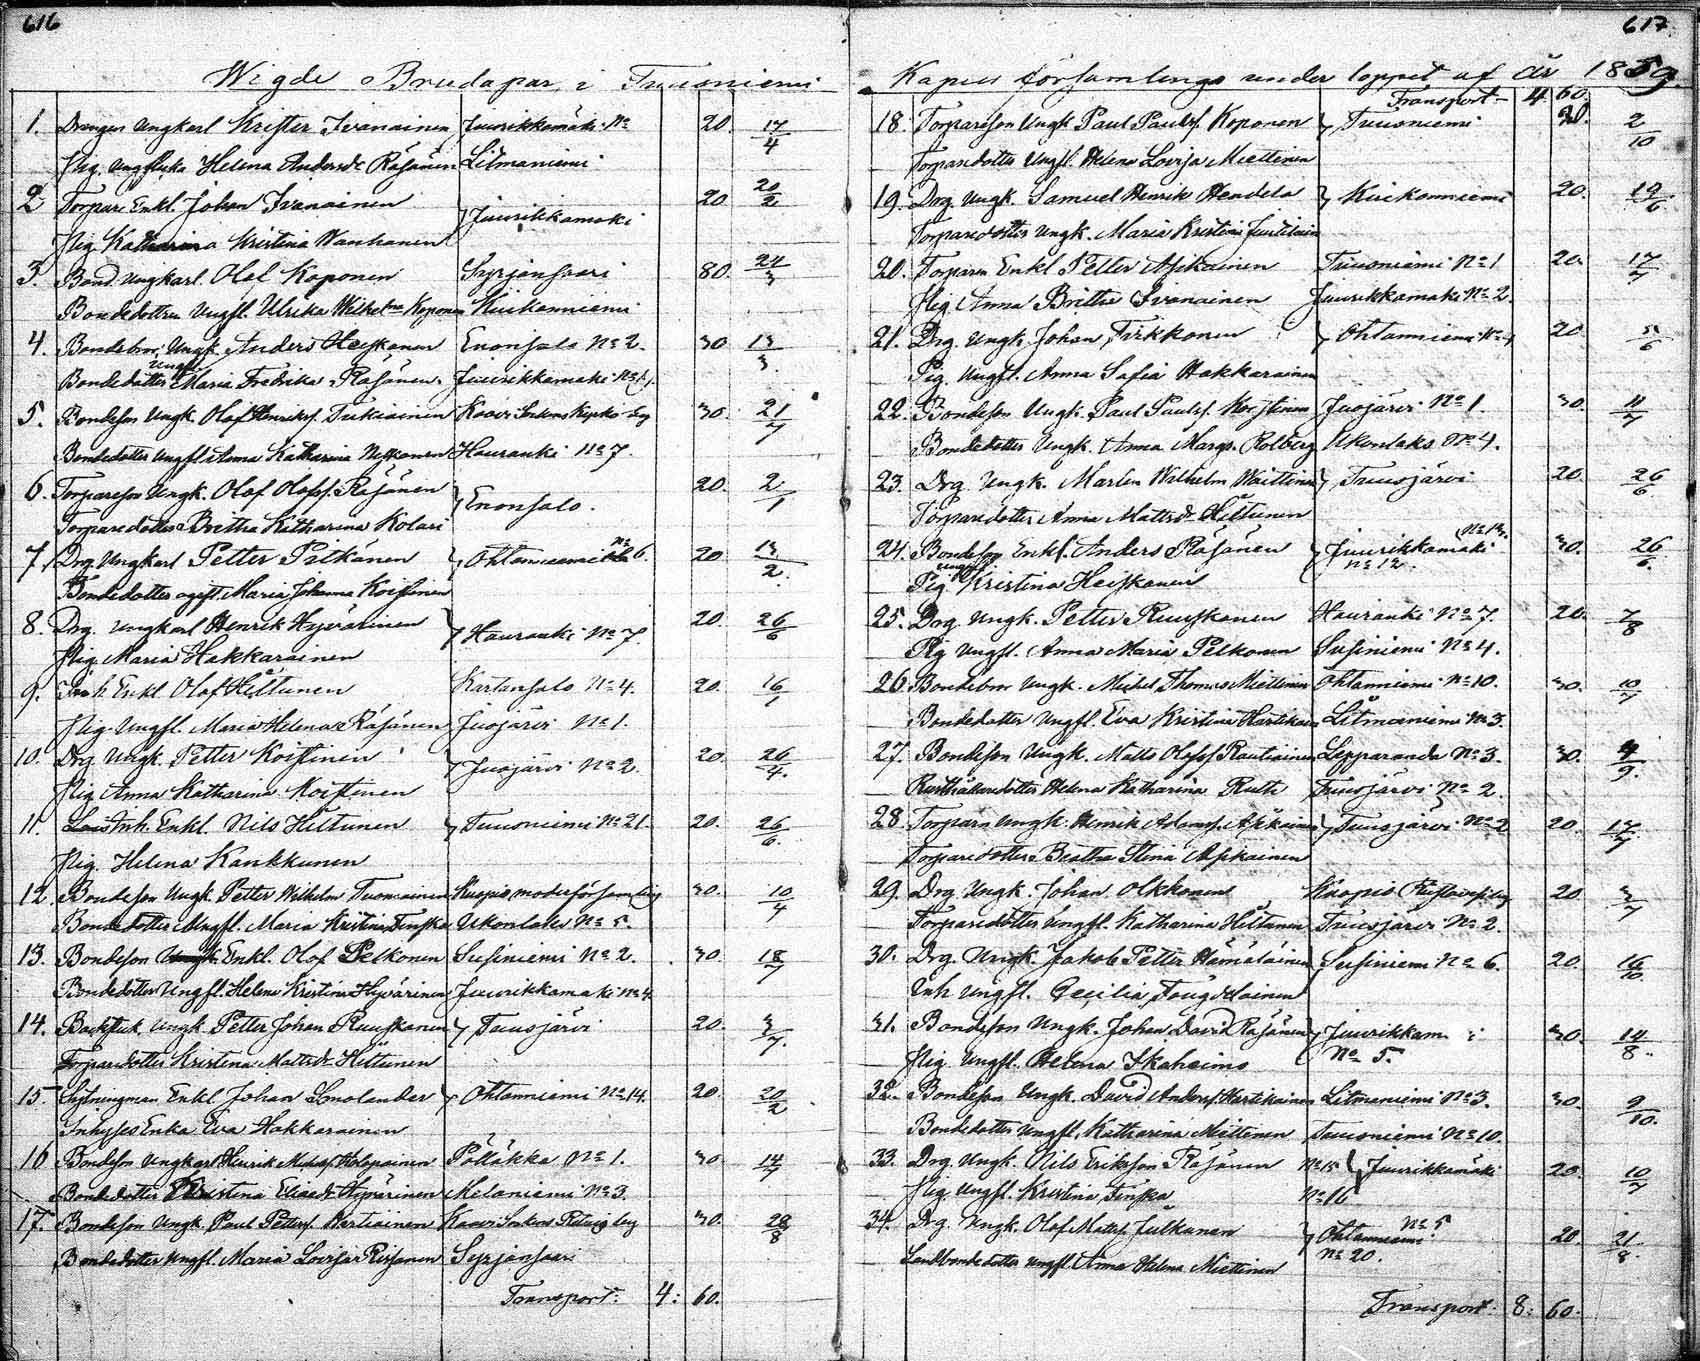 616
Wigde Brudapar i Tuusniemi
1. Drengen Ungkarl Krister Ivanainen Juurikkamäki No 20. 17/4
Pig. Ungflicka Helena Andersdr Räsänen Litmaniemi
2 Torpar. Enkl. Johan Ivanainen } Juurikkamäki 20
Pig Katharina Kristina Vanhanen
3. Bond. Ungkarl. Olof Koponen Syrjänsaari 80.
Bondedottren Ungfl. Ulrika Koponen Kiukonniemi
4. Bondebror Ungk. Anders Heiskanen Enonsalo No 2. 30 13/3.
Bondedotter Ungfl. Maria Fredrika Räsänen. Juurikkamäki
5. Bondeson Ungk. Olof Henrikss. Tukiainen Kaavi 30. 21/7
Bondedotter Ungfl Anna Katharina Hauranki No 7.
6. Torpareson Ungk. Olof Olofss. Räsänen } Enonsalo. 20. 2/1
Torparedotter Britha Katharina Kolari
7. Drg. Ungkarl Petter Pitkänen } Ohtanniemi No 6. 20 13/2.
Bondedotter Maria Johanna Koistinen
8. Drg. Ungkarl Henrik Hyvärinen } Hauranki No 7. 20. 26/6
Pig. Maria Hakkarainen
9. Inh. Enkl. Olof Hiltunen Kartansalo No 4. 20. 16/1
Pig. Ungfl. Maria Helena Räsänen Juojärvi No 1.
10. Drg. Ungk. Petter Koistinen } Juojärvi No 2. 20. 26/4.
Pig Anna Katharina Koistinen
11. Inh. Enkl. Nils Hiltunen } Tuusniemi No 21. 20. 26/6
Pig. Helena Kankkunen
12. Bondeson Ungk. Petter Wilhelm Tuomainen Kuopio moderförsamling 30. 10/4
Bondedotter Ungfl. Maria Kristina Tenska Ukonlaks No 5.
13. Bondeson Enkl. Olof Pelkonen Susiniemi No 2. 30. 18/7
Bondedotter Ungfl. Helena Kristina Hyvärinen Juurikkamäki No 4.
14. Ungk. Petter Johan Ruuskanen } Tuusjärvi 20. 3/7.
Torparedotter Kristina Mattsdr Hiltunen
15. Sytningman Enkl Johan Smolander } Ohtanniemi No 14. 20 20/2
Inhyses Enka Eva Hakkarainen
16 Bondeson Ungkarl Henrik Holopainen Pölläkkä No 1. 30 14/7
Bondedotter Kristina Eliaedr Hyvärinen Melaniemi No 3.
17. Bondeson Ungk. Paul Petterss. Kaavi 30. 28/8
Bondedotter Ungfl. Maria Lovisa Syrjänsaari
Transport: 4: 60.
617.
Kapell församlings under loppet af år 1859.
Transport 4 60.
18. Torpareson Ungk Paul Paulss. Koponen } Tuusniemi 20. 2/10
Torparedotter Ungfl. Helena Lovisa Miettinen
19. Drg Ungk. Samuel Henrik } Kiukonniemi 20. 19/6
Torparedotter Ungk. Maria Kristina Juutilain
20. Torparen Enkl. Petter Asikainen Tuusniemi No 1 20. 17/7
Pig. Anna Britha Ivanainen Juurikkamäki No 2.
21. Drg. Ungk. Johan Tirkkonen } Ohtanniemi 20 5/6
Pig. Ungfl. Anna Sofia Hakkarainen
22. Bondeson Ungk. Paul Paulss. Koistinen Juojärvi No 1. 30. 11/7
Bondedotter Ungk. Anna Marg. Rolberg Ukonlaks No 4.
23. Drg Ungk. Martin Wilhelm } Tuusjärvi 20. 26/6
Torparedotter Anna Mattsdr Hiltunen
24. Bondeson Enkl. Anders Räsänen } Juurikkamäki No 12. 30. 26/6
Pig Kristina Heiskanen
25. Drg. Ungk. Petter Ruuskanen Hauranki No 7. 20. 7/8
Pig Ungfl. Anna Maria Pelkonen Susiniemi No 4.
26. Bondebror Ungk. Michel Thomas Miettinen Ohtanniemi No 10. 30. 10/7
Bondedotter Ungfl. Eva Kristina Hartikain Litmaniemi No 3.
27. Bondeson Ungk. Matts Olofss. Rautiainen Lepparanda No 3. 30. 4/9.
Rusthållaredotter Helena Katharina Ruth Tuusjärvi No 2.
28 Torparn Ungk. Henrik Adamss. Asikainen } Tuusjärvi No 2 20 17/7
Torparedotter Beatha Stina Asikainen
29. Drg. Ungk. Johan Olkkonen Kuopio 20. 3/7
Torparedotter Ungfl. Katharina Hiltunen Tuusjärvi No 2.
30. Drg. Ungk. Jakob Petter Hämäläinen } Susiniemi No 6. 20. 16/10.
Inh Ungfl. Cecilia
31. Bondeson Ungk. Johan David Räsänen } Juurikkam i No 5. 30. 14/8.
Pig. Ungfl. Helena Ikäheimo
32. Bondeson Ungk. David Anderss. Hartikainen Litmaniemi No 3. 30. 9/10.
Bondedotter Ungfl. Katharina Miettinen Tuusniemi No 10.
33. Drg. Ungk. Nils Eriksson Räsänen No 15 } Juurikkamäki 20. 10/7
Pig. Ungfl. Kristina Tenska No 16
34. Drg. Ungk. Olof Matss. Julkunen } Ohtanniemi No 5 20 21/8.
Landbondedotter Ungfl. Anna Helena Miettinen No 20.
Transport: 8: 60.